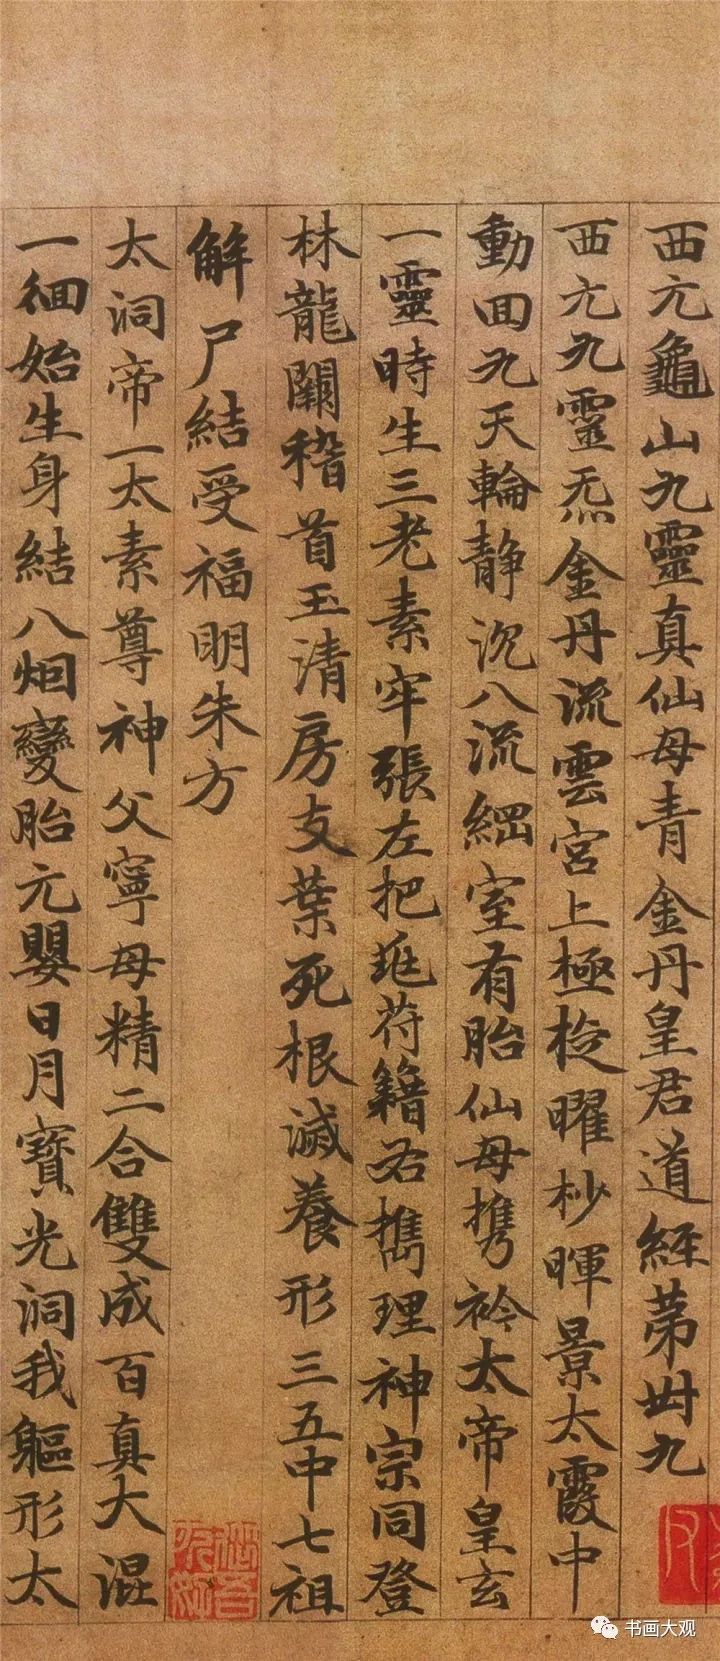 西元龜山九靈真仙母青金丹皇君道經第卌九
西元九靈炁金丹流雲宮上極梭曜杪暉景太霞中
動回九天輪靜沉八流網室有胎仙母携衿太帝皇玄
一靈時生三老素牢張左把符籍右攜理神宗同登
林龍闕稽首玉清房支葉死根滅養形三五中七祖
解尸結受福明朱方
太洞帝一太素尊神父寧母精二合雙成百真大混
一徊始生身結八烟變胎元嬰日月寶光洞我軀形太
书画大观